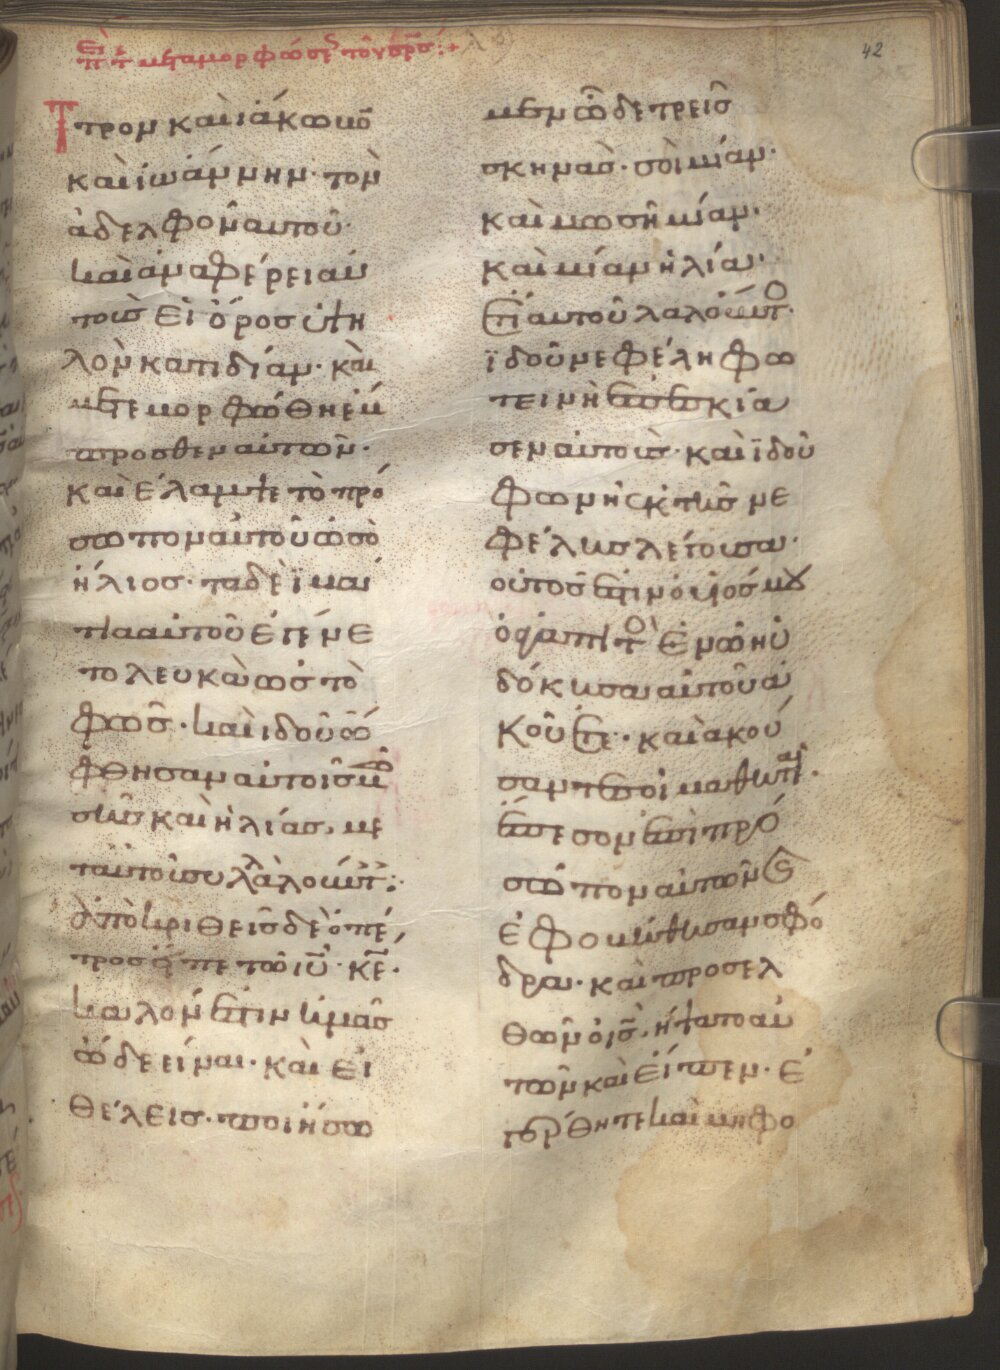 42
Εἰ τ μεταμορφώσει τοῦ σρσ :+
τρον καὶ ἰάκωβο
καὶ ἰωάννην· τὸν
ἀδελφὸν αυτοῦ·
καὶ ἀναφέρει αυ
τοὺσ εἰ ὄροσ ὑψη
λὸν κατιδίαν· καὶ
μετεμορφώθη ἔμ
προσθεν αὐτῶν·
καὶ ἔλαμψε τὸ πρό
σωπον αὐτοῦ ὡσ ὁ
ἥλιοσ· τα δὲ ϊμάι
τια αυτοῦ ἐγένε
το λευκὰ ὡσ τὸ
φῶσ· καὶ ιδοῦ ὤ
φθησαν αὐτοῖσ μω
σῆσ καὶ ἠλίασ, με
ταὐτοῦ συλλαλοῦντ·:
ἀποκριθεὶσ δὲ ὁ πέ
τροσ εἶπε τῶ ιυ· κε·
καλόν ἐστιν ἡμᾶσ
ὧδε εἶναι· καὶ εἰ
θέλεισ· ποιήσω
μεν ὧδε τρεῖσ
σκηνασ· σοὶ μίαν·
καὶ μωσῆ μίαν·
καὶ μίαν ἠλία·
ἔτι αυτοῦ λαλοῦντο·
ϊδοῦ νεφέλη φω
τεινὴ ἐπεσκία
σεν αὐτοισ· καὶ ϊδοῦ
φωνὴ ἐκ τησ νε
φέλησ λέγουσα·
οὗτόσ ἐστιν ὁ υἱόσ μου
ὁ αγαπητο ἐν ῶ ηὐ
δόκησα αὐτοῦ ἀ
κοῦετε· καὶ ακού
σαντεσ οἱ μαθηταὶ·
ἔπεσον ἐπὶ πρό
σωπον αὐτῶν κ
ἐφοβήθησαν σφό
δρα· καὶ προσελ
θὼν ὁ ισ, ἥψατο αυ
τῶν καὶ εἶπεν· ἐ
γέρθητε καὶ μη φο